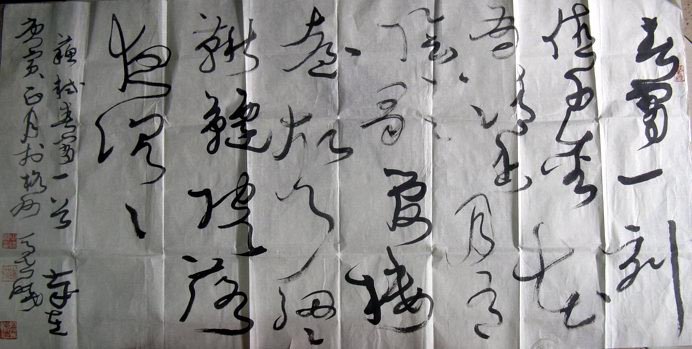 春宵一刻
值千金花
有清香月有
陰歌管樓
臺聲細々
鞦韆院落
夜沉々
蘇軾春宵一首
庚寅正月於